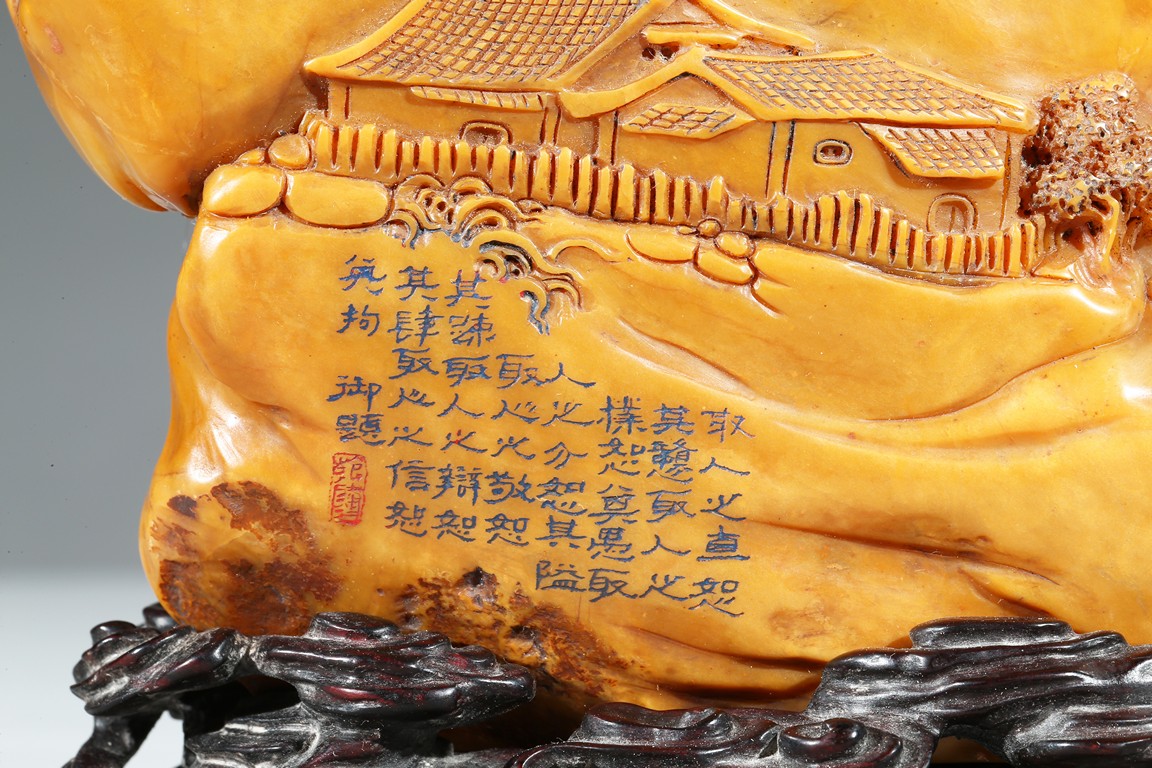 取人之直恕
其戇取人之
樸恕其愚取
人之介恕其隘
取人之敬恕
其疎取人之辯恕
其肆取人之信恕
其拘 御題